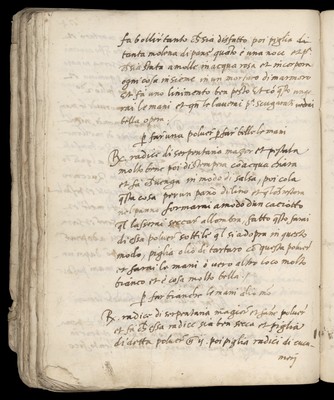 fa bollir tanto che sia disfatto, poi piglia di
tanta molena di pane quato è una noce et pª
sia stata a molle in acqua rosa et incorpora
ogni cosa insieme in un mortaro di marmoro
et fa uno linimento ben pesto et cō qsto unge
rai le mani et qn le lauerai
bella opra:
far una poluer p far belle le mani
Rx. radice di serpentaria magior et pestala
molto bene poi distempra cō acqua chiara
et fa che venga in modo di salsa, poi cola
qsta cosa per un pano di lino et
nel panno formarai a modo d'un caciotto
qł lasserai seccar all'ombra, fatto qsto farai
di esta poluer sottile qł si adopra in questo
modo, piglia olio di tartaro cō questa poluer
et farai le mani è vero altro loco molto
bianco et è cosa molto bella.
p far bianche le mani
Rx. radice di serpentaria magior et fane poluer
et fa che essa radice sia ben secca et piglia
di detta poluer poi piglia radici di cucu
merj